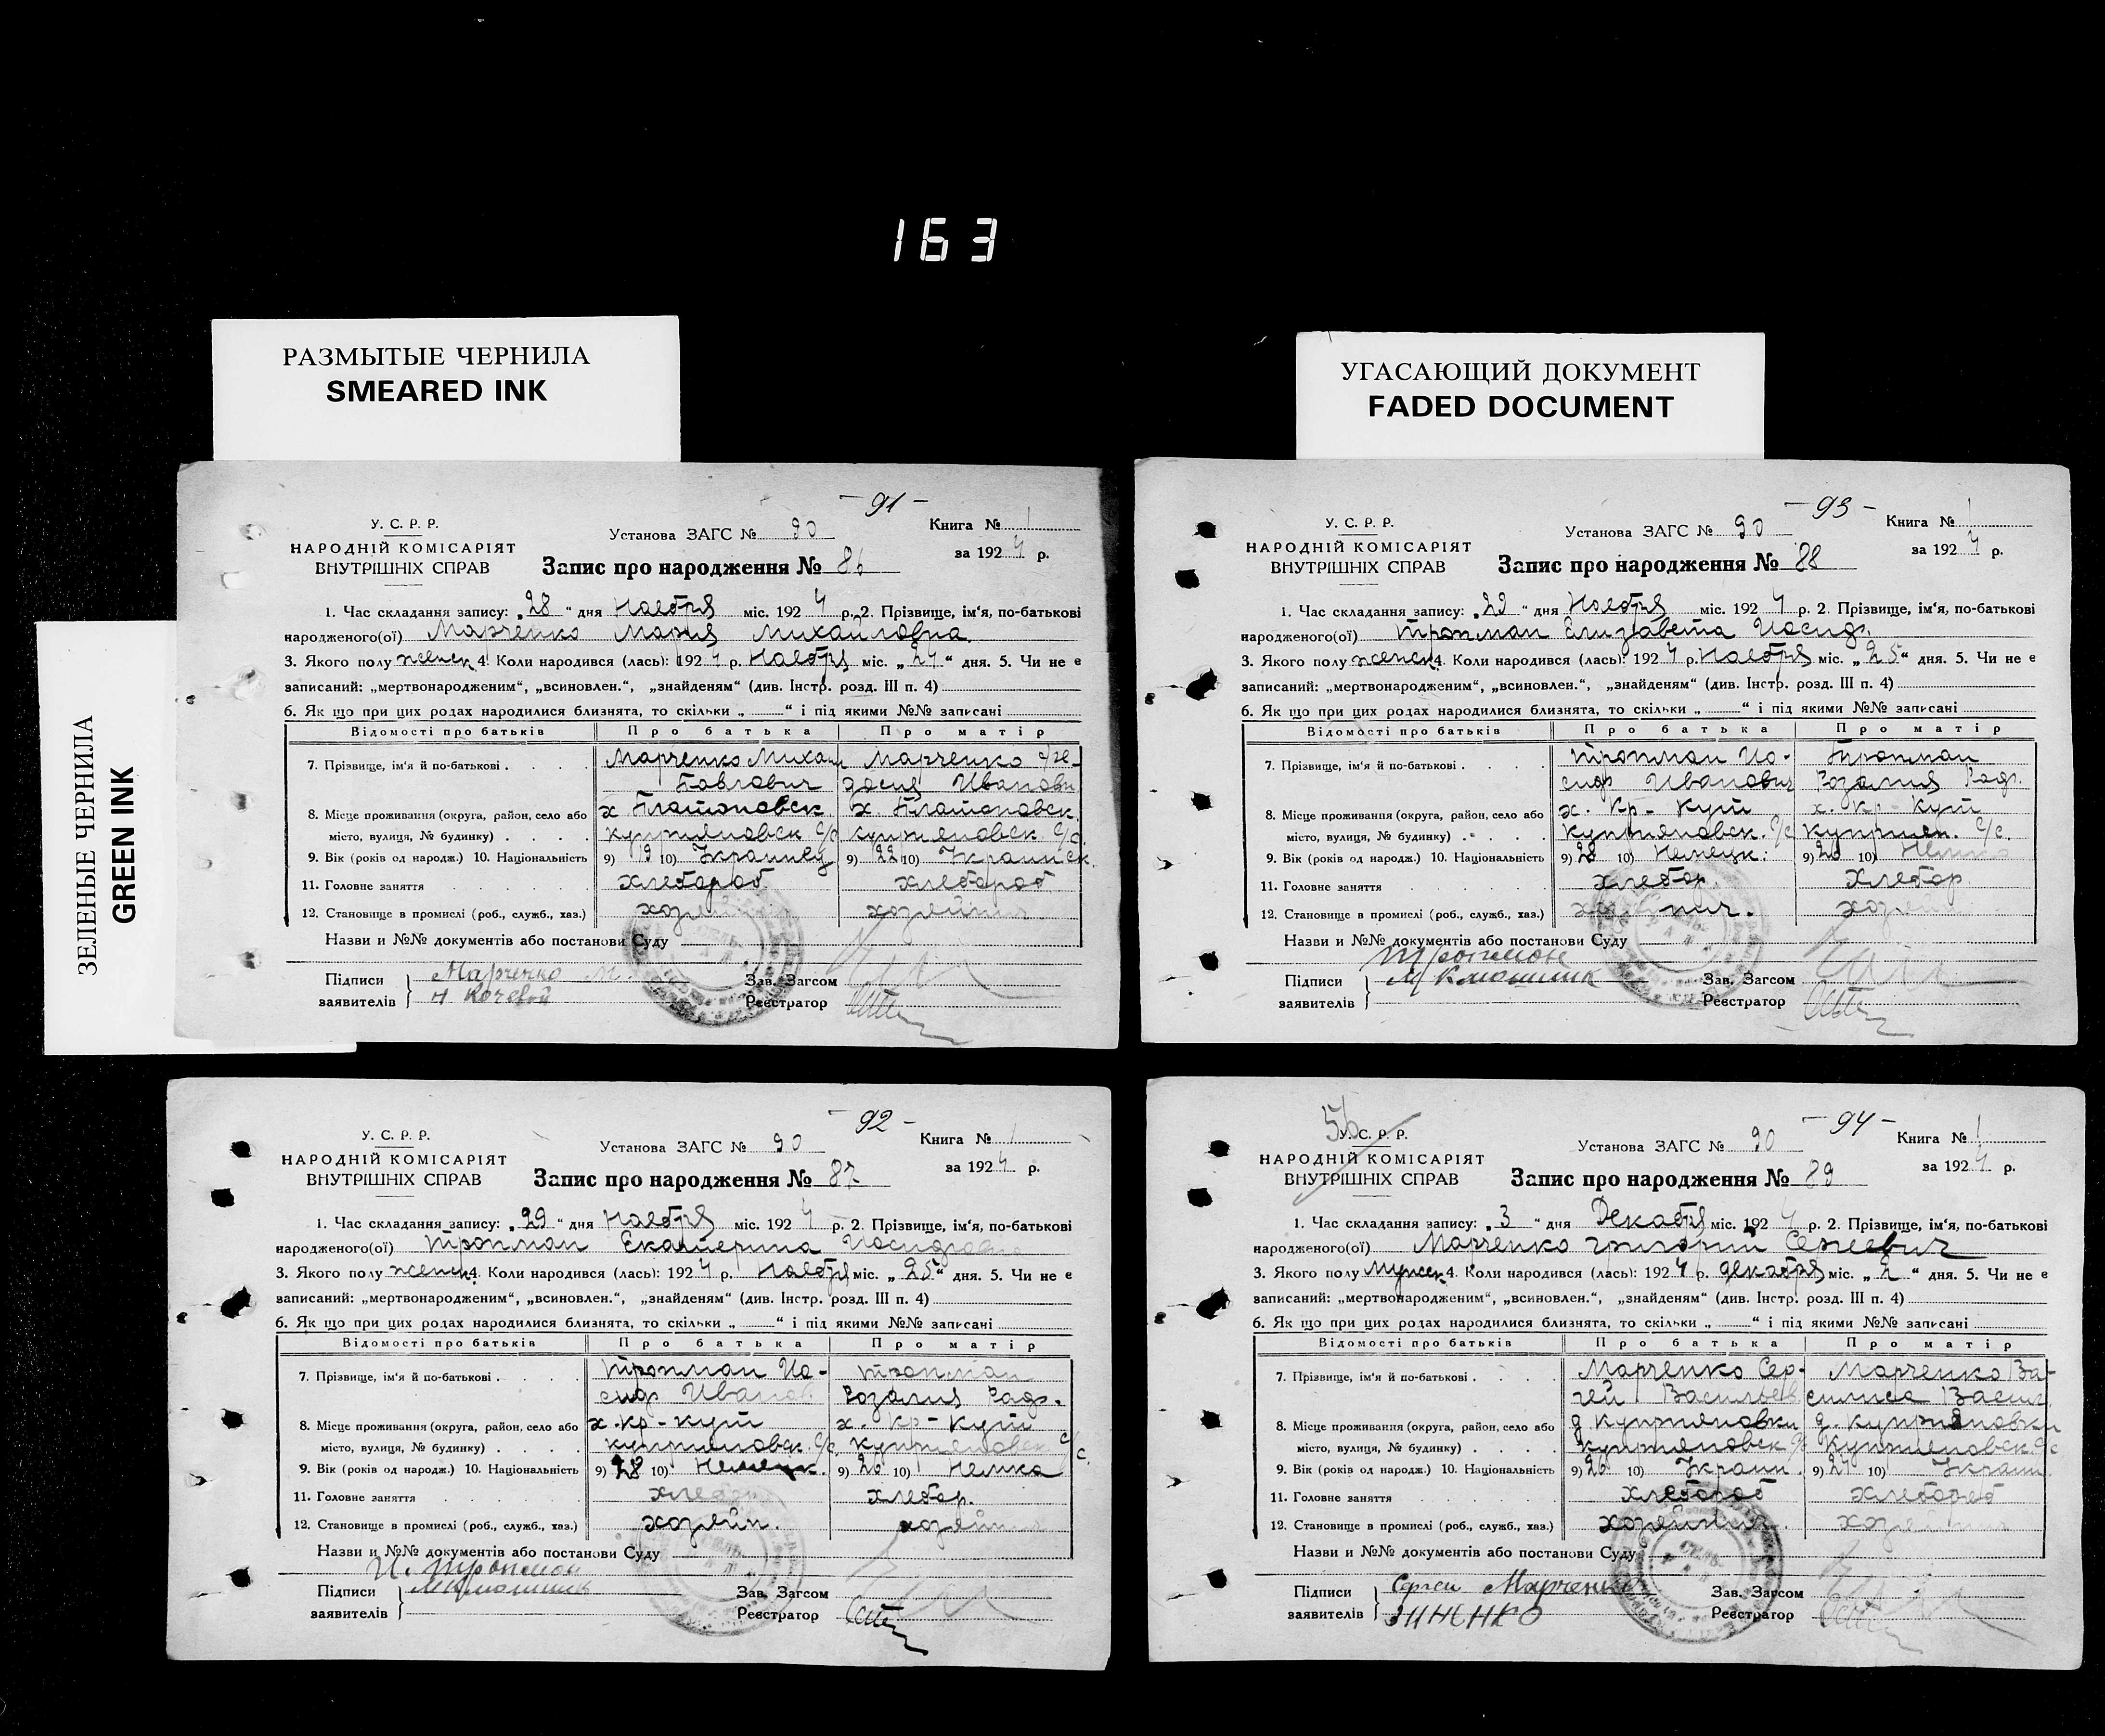 163
РАЗМЫТЫЕ ЧЕРНИЛА
SMEARED INK
УГАСАЮЩИЙ ДОКУМЕНТ
FADED DOCUMENT
ЗЕЛЕНЫЕ ЧЕРНИЛА
GREEN INK
- 91 -
У. С. Р. Р.
НАРОДНІЙ КОМІСАРІЯТ
ВНУТРІШНІХ СПРАВ
Установа ЗАГС № 90
Книга № 1
за 1924 р.
Запис про народження № 86
1. Час складання запису: „28“ дня Ноября міс. 1924 р. 2. Прізвище, ім‘я, по-батькові
народженого(ої) Марченко Мария Михайловна
3. Якого полу женск. 4. Коли народився (лась): 1924 р. Ноября міс. „24“ дня. 5. Чи не є
записаний: „мертвонародженим“, „всиновлен.“, „знайденям“ (див. Інстр. розд. III п. 4)
6. Як що при цих родах народилися близнята, то скільки „ “ і під якими №№ записані
Відомості про батьків Про батька Про матір
7. Прізвище, ім‘я й по-батькові Марченко Михаил Марченко
Павлович Иванови
8. Місце проживання (округа, район, село або х. Платоновск. х. Платоновск.
місто, вулиця, № будинку) куприяновск. с/с куприяновск. с/с.
9. Вік (років од народж.) 10. Національність 9) 19 10) Украинец 9) 22 10) Украинск.
11. Головне заняття хлебороб хлебороб
12. Становище в промислі (роб., служб., хаз.)
Назви и №№ документів або постанови Суду
Підписи Марченко М. Зав. Загсом
заявителів Кочевой Реєстратор
- 93 -
У. С. Р. Р.
НАРОДНІЙ КОМІСАРІЯТ
ВНУТРІШНІХ СПРАВ
Установа ЗАГС № 90
Книга № 1
за 1924 р.
Запис про народження № 88
1. Час складання запису: „29“ дня Ноября міс. 1924 р. 2. Прізвище, ім‘я, по-батькові
народженого(ої) Тропман Елизавета Иосиф.
3. Якого полу женск. 4. Коли народився (лась): 1924 р. Ноября міс. „25“ дня. 5. Чи не є
записаний: „мертвонародженим“, „всиновлен.“, „знайденям“ (див. Інстр. розд. III п. 4)
6. Як що при цих родах народилися близнята, то скільки „ “ і під якими №№ записані
Відомості про батьків Про батька Про матір
7. Прізвище, ім‘я й по-батькові Тропман Ио- Тропман
сиф Иванович Розалия
8. Місце проживання (округа, район, село або х. Кр-Кут х. Кр-Кут
місто, вулиця, № будинку) куприяновск. с/с куприян. с/с.
9. Вік (років од народж.) 10. Національність 9) 28 10) Немецк. 9) 26 10) Немка
11. Головне заняття хлебор. хлебор.
12. Становище в промислі (роб., служб., хаз.)
Назви и №№ документів або постанови Суду
Тропман
Підписи Зав. Загсом
заявителів Реєстратор
- 92 -
У. С. Р. Р.
НАРОДНІЙ КОМІСАРІЯТ
ВНУТРІШНІХ СПРАВ
Установа ЗАГС № 90
Книга № 1
за 1924 р.
Запис про народження № 87
1. Час складання запису: „29“ дня Ноября міс. 1924 р. 2. Прізвище, ім‘я, по-батькові
народженого(ої) Тропман Екатерина Иосифовна
3. Якого полу женск. 4. Коли народився (лась): 1924 р. Ноября міс. „25“ дня. 5. Чи не є
записаний: „мертвонародженим“, „всиновлен.“, „знайденям“ (див. Інстр. розд. III п. 4)
6. Як що при цих родах народилися близнята, то скільки „ “ і під якими №№ записані
Відомості про батьків Про батька Про матір
7. Прізвище, ім‘я й по-батькові Тропман Ио- Тропман
сиф Иванов. Розалия
8. Місце проживання (округа, район, село або х. Кр-Кут х. Кр-Кут
місто, вулиця, № будинку) куприяновск. с/с куприяновск. с/с.
9. Вік (років од народж.) 10. Національність 9) 28 10) Немецк. 9) 26 10) Немка
11. Головне заняття хлебор. хлебор.
12. Становище в промислі (роб., служб., хаз.) хозяин.
Назви и №№ документів або постанови Суду
И. Тропман
Підписи Зав. Загсом
заявителів Реєстратор
- 94 -
56
У. С. Р. Р.
НАРОДНІЙ КОМІСАРІЯТ
ВНУТРІШНІХ СПРАВ
Установа ЗАГС № 90
Книга № 1
за 1924 р.
Запис про народження № 89
1. Час складання запису: „3“ дня Декабря міс. 1924 р. 2. Прізвище, ім‘я, по-батькові
народженого(ої) Марченко Григорий Сергеевич
3. Якого полу мужск. 4. Коли народився (лась): 1924 р. декабря міс. „2“ дня. 5. Чи не є
записаний: „мертвонародженим“, „всиновлен.“, „знайденям“ (див. Інстр. розд. III п. 4)
6. Як що при цих родах народилися близнята, то скільки „ “ і під якими №№ записані
Відомості про батьків Про батька Про матір
7. Прізвище, ім‘я й по-батькові Марченко Сер- Марченко Ва-
гей Васильев силиса Васил.
8. Місце проживання (округа, район, село або д. куприяновки д. куприяновки
місто, вулиця, № будинку) куприяновск с/с Куприяновск с/с
9. Вік (років од народж.) 10. Національність 9) 26 10) Украин. 9) 24 10) Украин.
11. Головне заняття хлебороб хлебороб
12. Становище в промислі (роб., служб., хаз.)
Назви и №№ документів або постанови Суду
Підписи Сергей Марченко Зав. Загсом
заявителів Зинченко Реєстратор